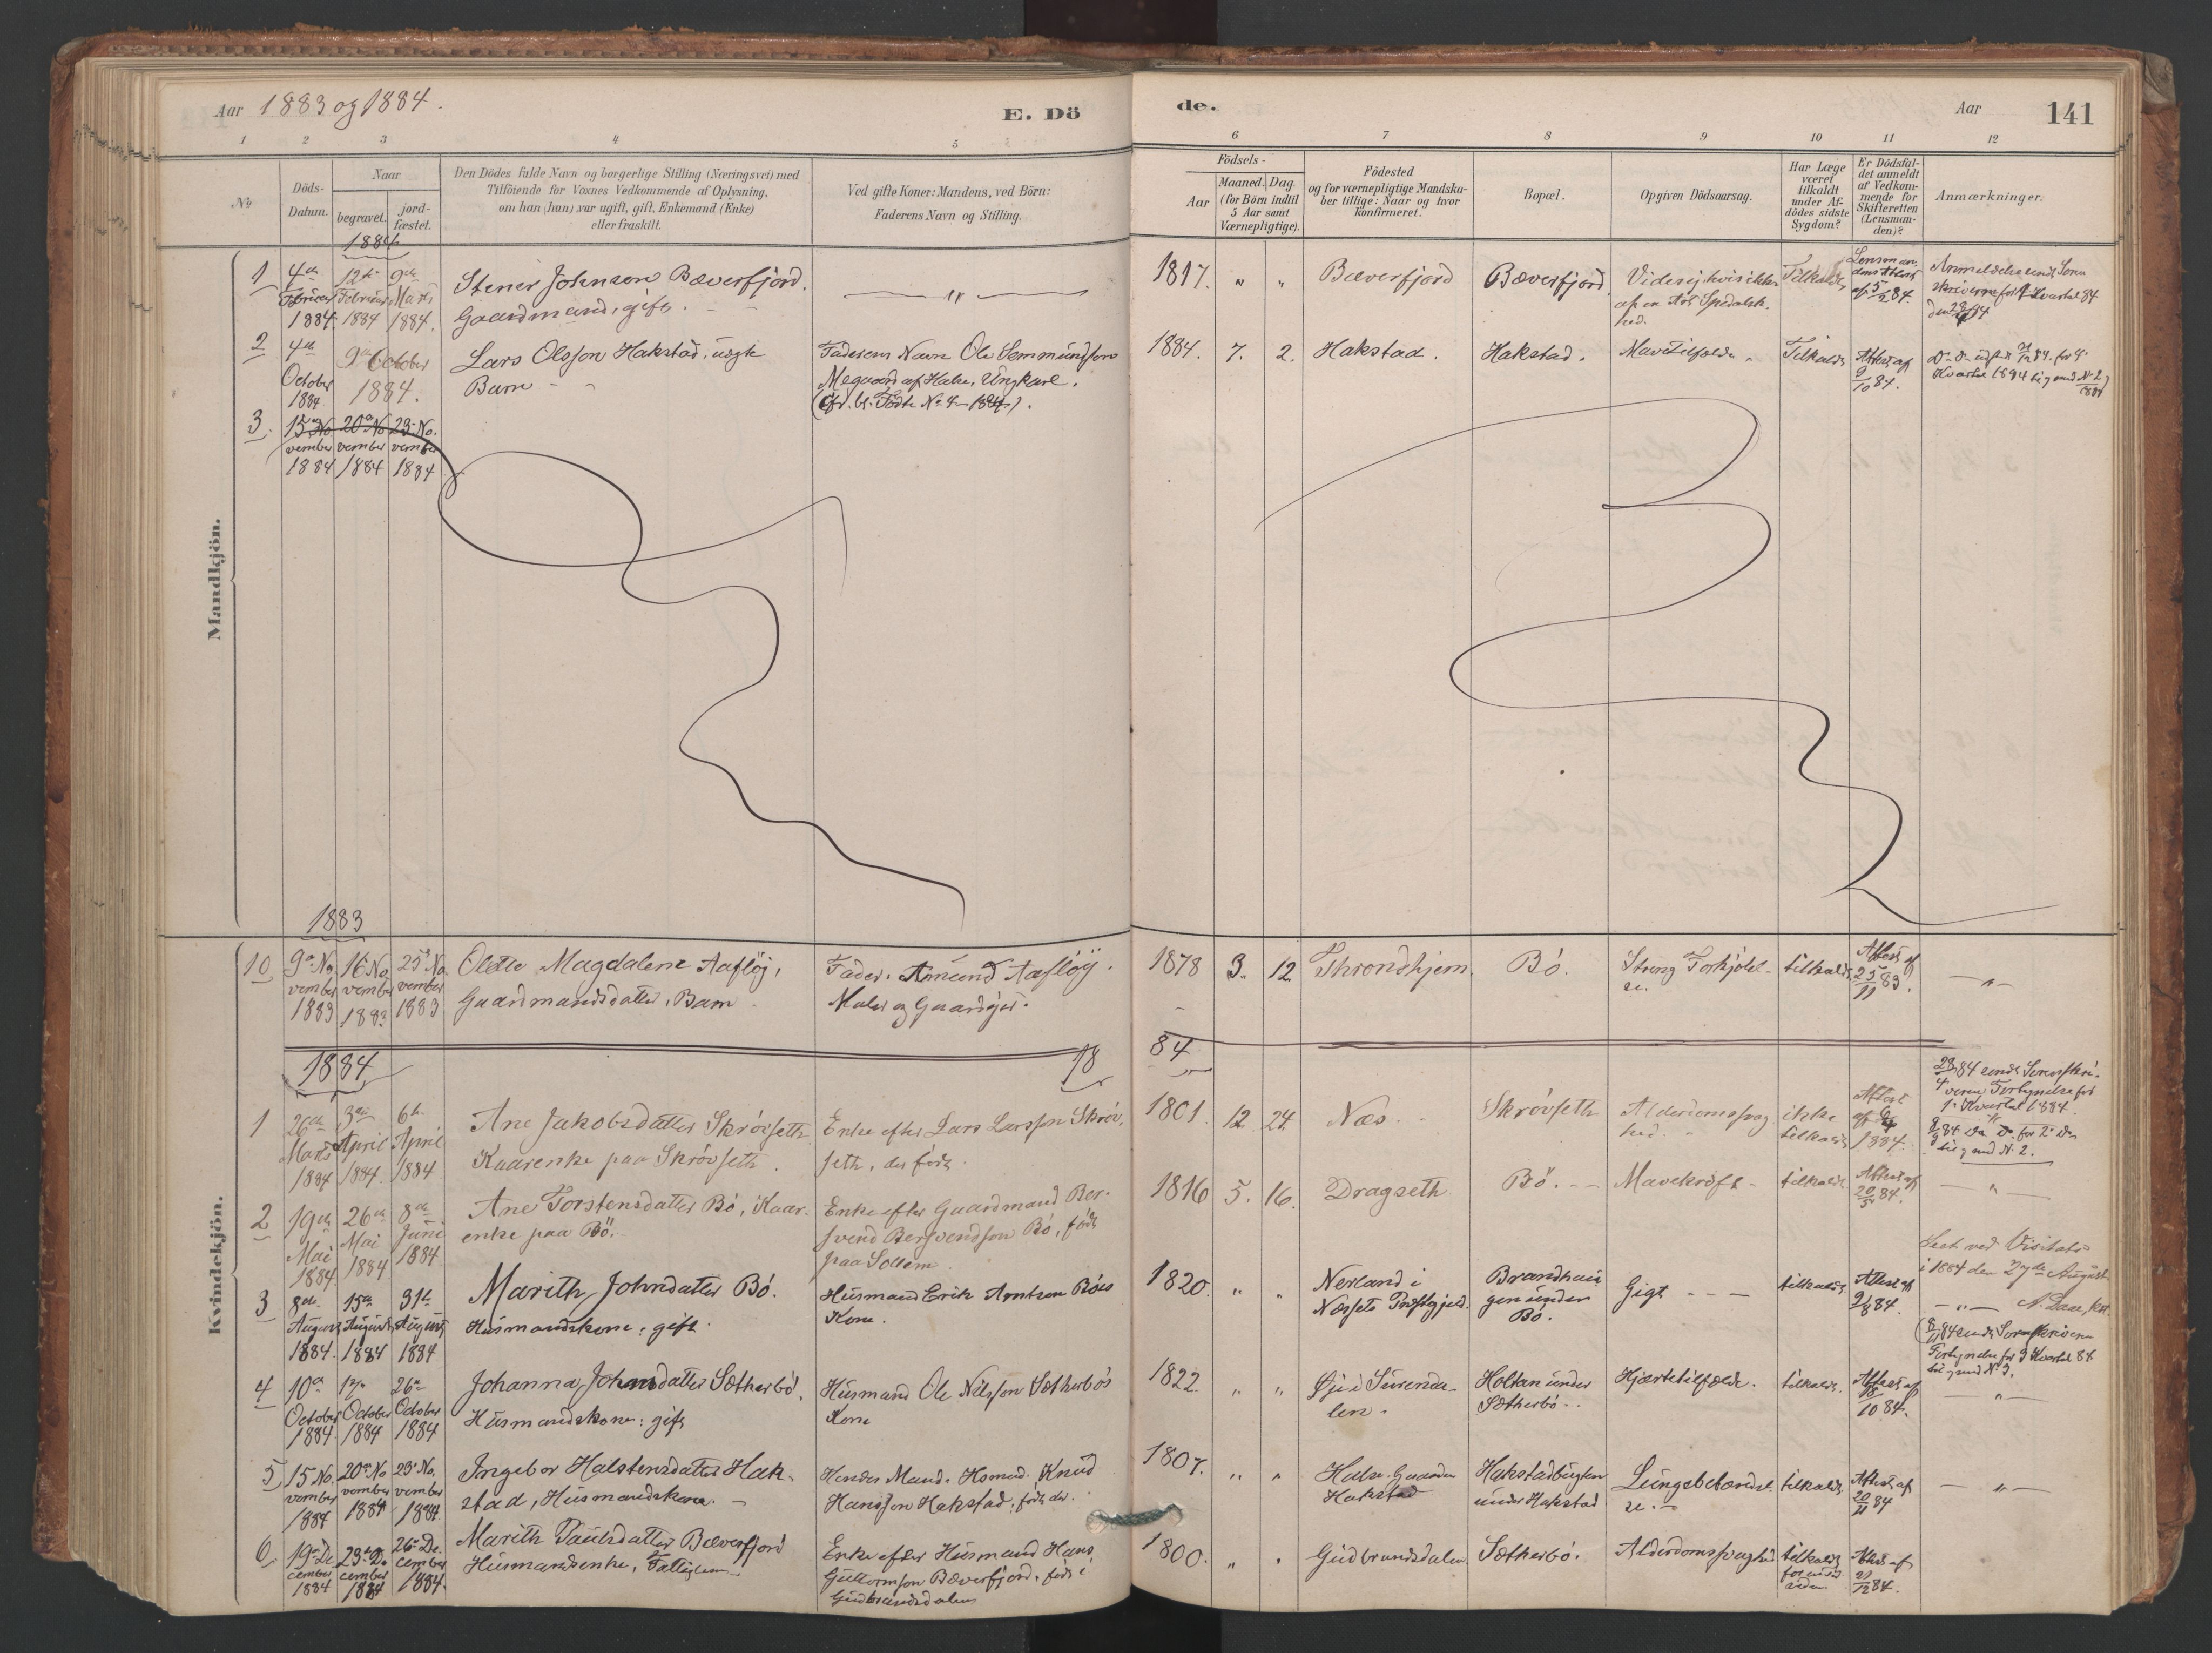 Aar 1883 og 1884.
E. Dö
de.
Aar
141
1 2 3 4 5 6 7 8 9 10 11 12
No
Döds-
Datum.
Naar
begravet.
jord-
fæstet.
Den Dödes fulde Navn og borgerlige Stilling (Næringsvei) med
Tilföiende for Voxnes Vedkommende af Oplysning,
om han (hun) var ugift, gift, Enkemand (Enke)
eller fraskilt.
Ved gifte Koner: Mandens, ved Börn:
Faderens Navn og Stilling.
Födsels-
Aar
Maaned. Dag.
(for Börn indtil
5 Aar samt
Værnepligtige).
Födested
og for værnepligtige Mandska-
ber tillige: Naar og hvor
konfirmeret.
Bopæl.
Opgiven Dödsaarsag.
Har Læge
været
tilkaldt
under Af-
dödes sidste
Sygdom?
Er Dödsfal-
det anmeldt
af Vedkom-
mende for
Skifteretten
(Lensman-
den)?
Anmærkninger.
Mandkjön.
1884
1
4de
Februar
1884
12te
Februar
1884
9de
Marts
1884.
Stener Johnsen Bæverfjord.
Gaardmand, gift.
— " —
1817. " "
Bæverfjord
Bæverfjord
Vides ej hvis ikke
af en Art Spedalsk-
hed.
Tilkaldt
Attest
af 5/2 84.
2
4de
October
1884
9de October
1884.
Lars Olsson Hakstad, uægte
Barn
Faderens Navn Ole Semmundson
Megaard af Halse, Ungkarl.
(cfr. bl. Födte No 4 1884).
1884. 7. 2.
Hakstad.
Hakstad.
Mavetilfælde
Tilkaldt
Attest af
9/10 84.
3.
15 No
vember
1884
20 No
vember
1884
23 No.
vember
1884
1883
Kvindekjön.
10
9 No
vember
1883
16 No
vember
1883
25 No
vember
1883
Olette Magdalene Aafløj,
Gaardmandsdatter, Barn
Fader: Amund Aafløy.
Maler og Gaardejer.
1878 3. 12
Throndhjem.
Bö.
Streng Forkjölel-
se.
tilkaldt
Attest af
25/11 83.
— " —
1884
18
84
1
26de
Marts
1884
3die
April
1884.
6te
April
1884
Ane Jakobsdatter Skrövseth
Kaarenke paa Skrövseth.
Enke efter Lars Larsson Skröv-
seth, der født.
1801. 12. 24.
Næs.
Skrövseth
Alderdomssvag
hed.
ikke
tilkaldt
Attest
1884.
1 Kvartal 1884.
2
19de
Mai
1884
26de
Mai
1884
8de
Juni
1884
Ane Torstensdatter Bö, Kaar-
enke paa Bö.
Enke efter Gaardmand Ber-
svend Bersvendson Bö, født
paa Sollem.
1816 5. 16.
Dragseth
Bö.
Mavekræft
tilkaldt
Attest af
20/5 84.
— " —
Seet ved Visitats
i 1884 den 27de August
3
8de
August
1884.
15de
August
1884
31te
August
1884
Marith Johnsdatter Bö.
Husmandskone, gift.
Husmand Erik Arntsen Böes
Kone.
1820. " "
Nerland i
Næssets Præstegjeld.
Brandhau-
gen under
Bö.
Gigt
tilkaldt
Attest af
84.
— " —
4
10de
October
1884
17de
October
1884
26de
October
1884
Johanna Johnsdatter Sætherbö.
Husmandskone, gift
Husmand Ole Nilsson Sætherbös
Kone
1822. " "
Øje i Surenda-
len.
Holtan under
Sætherbö
Hjærtetilfælde.
tilkaldt.
Attest af
10 84.
— " —
5
15 No.
vember
1884
20 No
vember
1884
23 No.
vember
1884
Ingebor Halstensdatter Hak-
stad, Husmandskone.
Hendes Mand: Husmd. Knud
Hansson Hakstad, født der.
1807. " "
Halse, Gaarden
Hakstad
Hakstadbugten
under Hakstad
Lungebetændel-
se.
tilkaldt
Attest af
20/11 84
— " —
6.
19 De
cember
1884
23 De
cember
1884
26 De.
cember
1884.
Marith Paulsdatter Bæverfjord
Husmandsenke, Fattiglem
Enke efter Husmand Hans
Guttormson Bæverfjord, født i
Gudbrandsdalen
1800. " "
Gudbrandsdalen
Sætherbö.
Alderdomssvaghed
tilkaldt
Attest af
21/12 84.